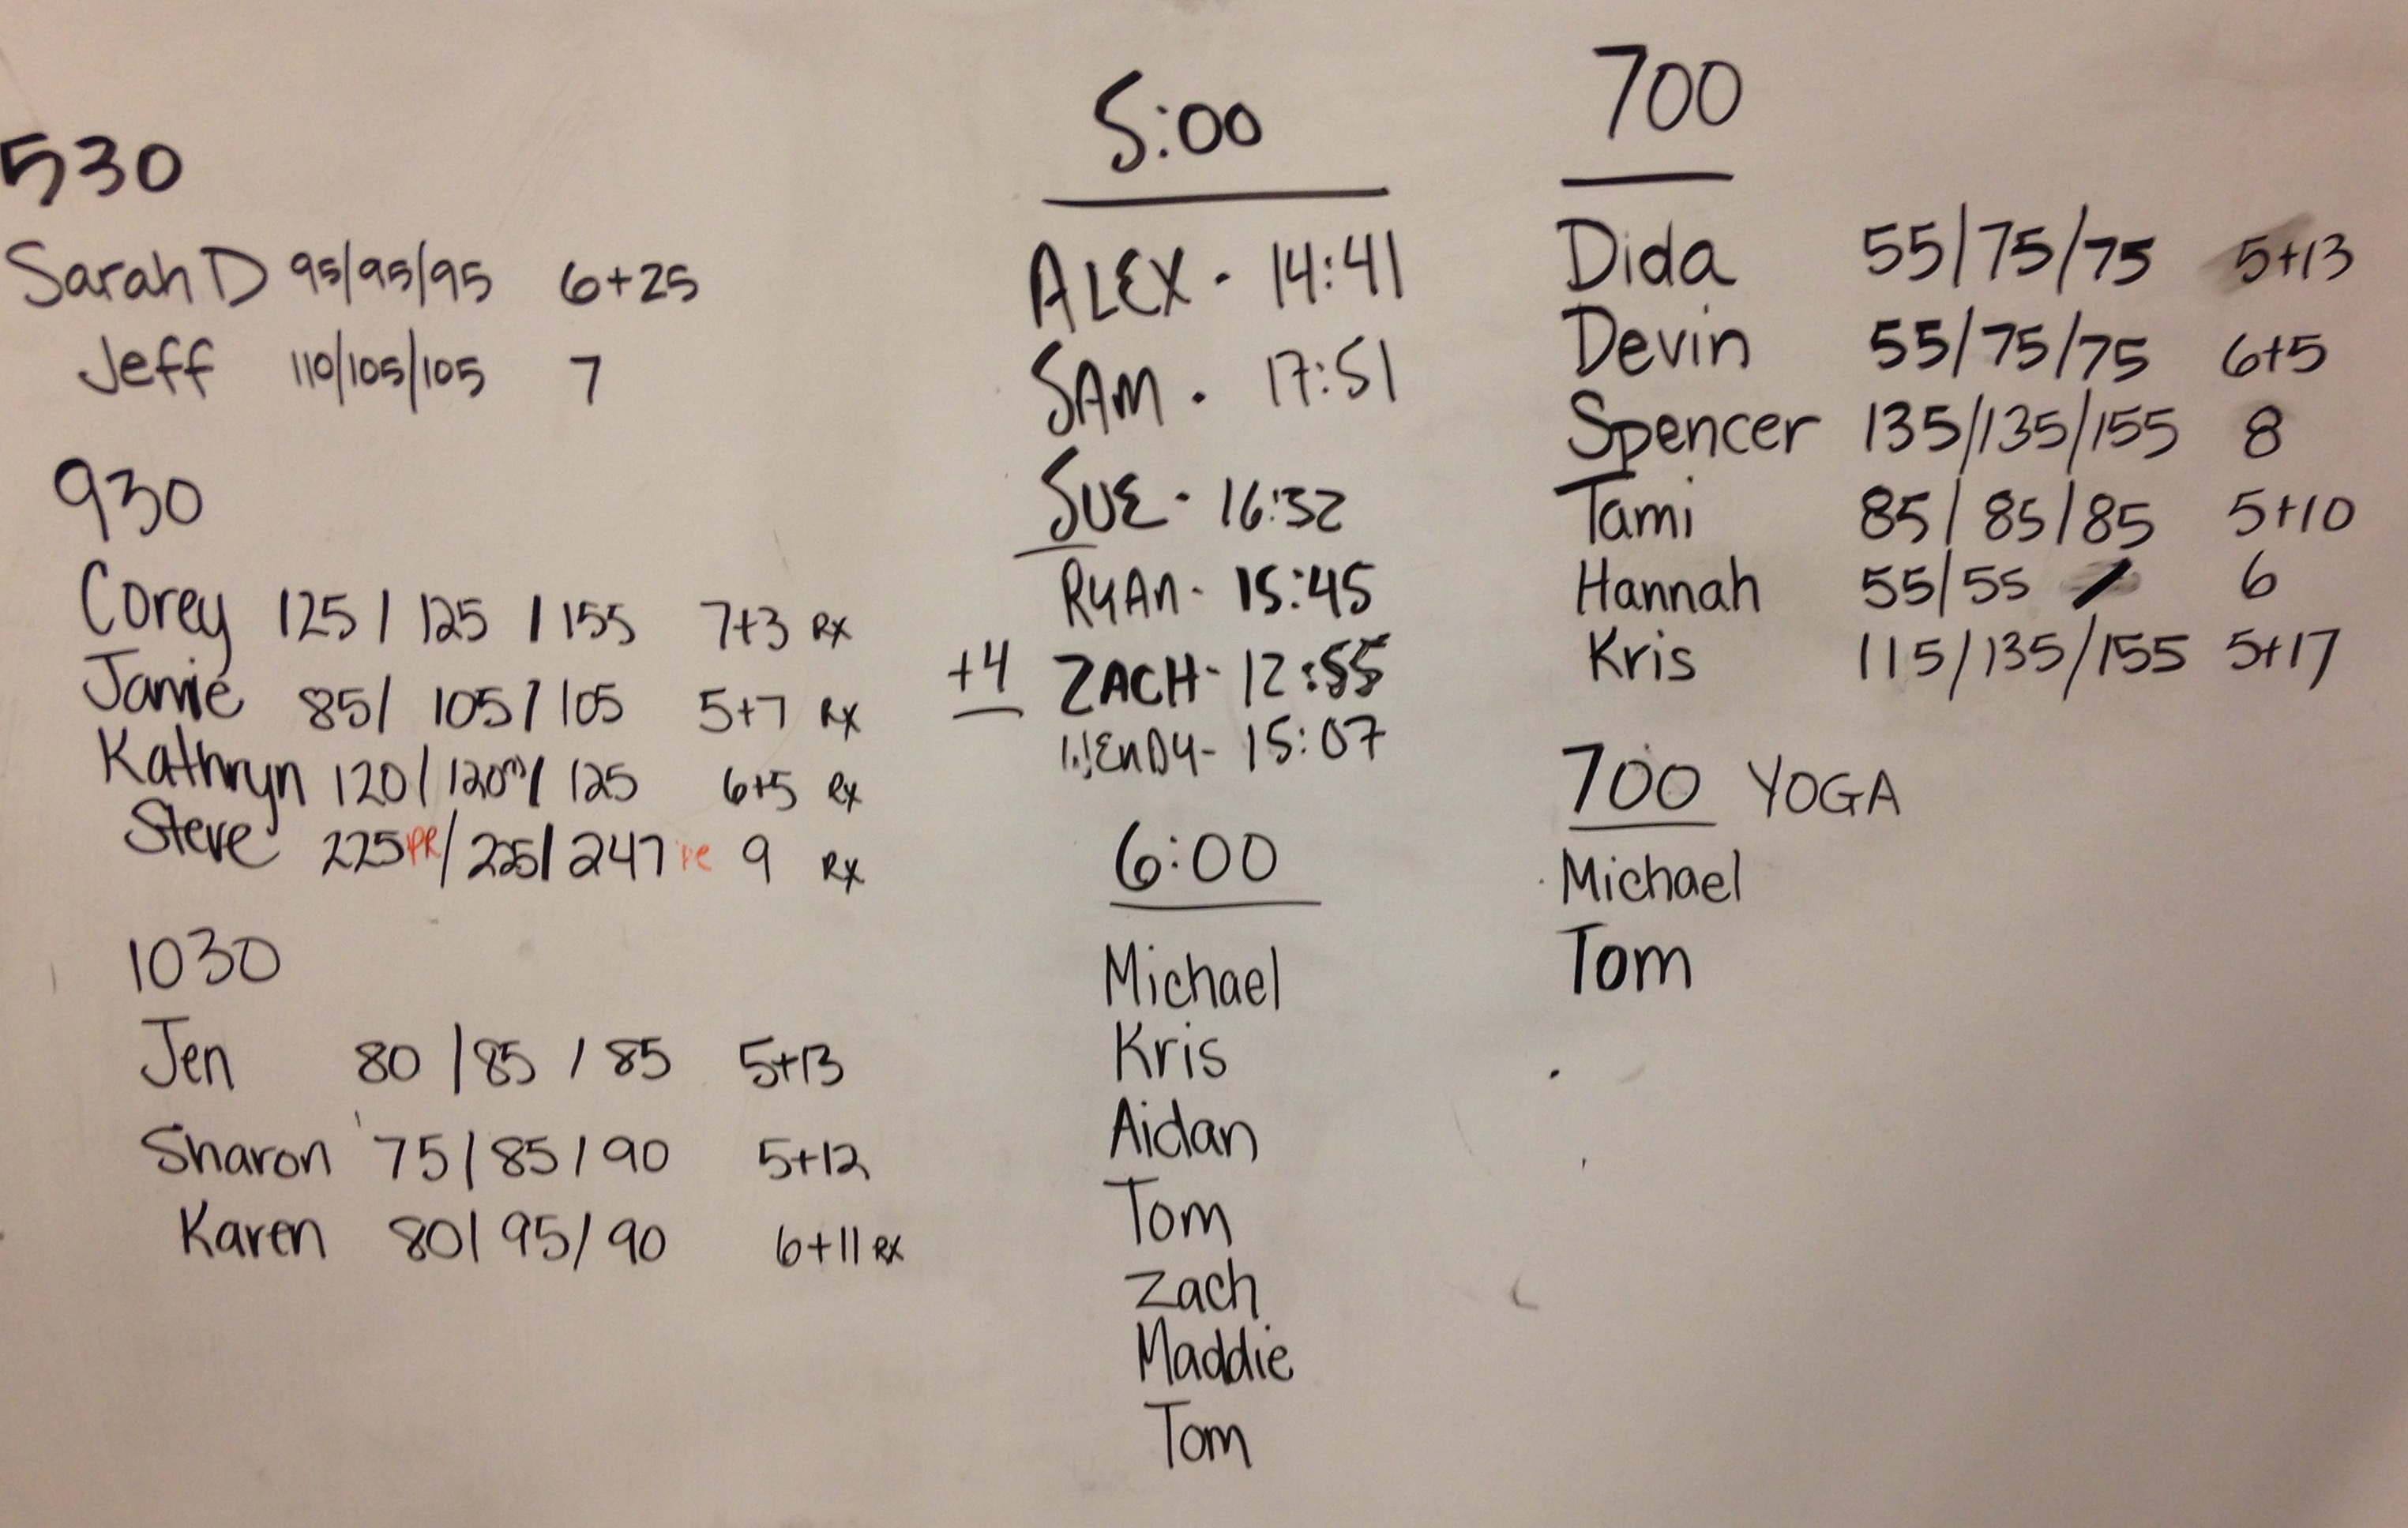 530
Sarah D 95/95/95 6+25
Jeff 110/105/105 7
930
Corey 125 / 125 / 155 7+3 Rx
Jamie 85/ 105 / 105 5+7 Rx
Kathryn 120 / 120 / 125 6+5 Rx
Steve 225 PR / 225 / 247 PR 9 Rx
1030
Jen 80 / 85 / 85 5+13
Sharon 75 / 85 / 90 5+12
Karen 80 / 95 / 90 6+11 RX
5:00
ALEX - 14:41
SAM - 17:51
SUE - 16:32
RYAN - 15:45
+4 ZACH - 12:55
WENDY - 15:07
6:00
Michael
Kris
Aidan
Tom
Zach
Maddie
Tom
700
Dida 55/75/75 5+13
Devin 55/75/75 6+5
Spencer 135//135/155 8
Tami 85/ 85/85 5+10
Hannah 55/55 / 6
Kris 115/135/155 5+17
700 YOGA
Michael
Tom